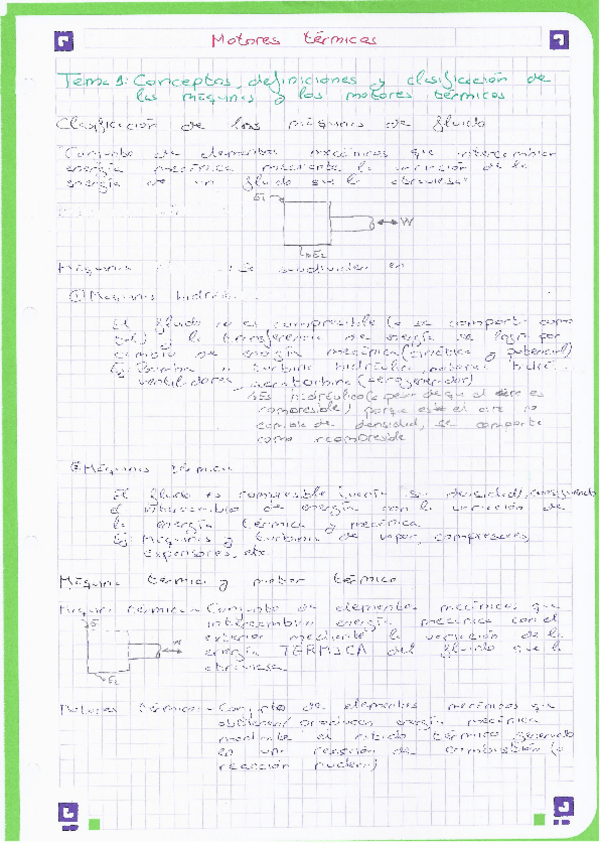 Motores térmicos
Tema 1: Conceptos, definiciones y clasificación de
las máquinas y los motores térmicos
Clasificación de las máquinas de fluido
"Conjunto de elementos mecánicos que intercambian
energía mecánica mediante la variación de la
energía de un fluido que lo atraviesa"
E1
W
E2
Máquinas se subdividen en
① Máquinas
El fluido no es compresible (o se comporta como
tal) y la transferencia de energía se logra por
cambio de energía mecánica (cinética y potencial)
Ej: Bomba turbina hidráulica,
ventiladores, aeroturbina (aerogenerador)
Es hidráulico (a pesar de que el aire es
compresible) porque el aire no
cambia de densidad, se comporta
como incompresible
② Máquinas térmicas
El fluido es compresible (varía su densidad), consiguiendo
el intercambio de energía con la variación de
la energía térmica y mecánica
Ej: Máquinas y turbinas de vapor, compresores,
expansores, etc
Máquina térmica y motor térmico
Máquina térmica - Conjunto de elementos mecánicos que
intercambian energía mecánica con el
exterior mediante la variación de la
energía TERMICA del fluido que la
atraviesa.
E1
W
E2
Motores térmicos - Conjunto de elementos mecánicos que
obtienen/producen energía mecánica
mediante el estado térmico generado
en una reacción de combustión (o
reacción nuclear)